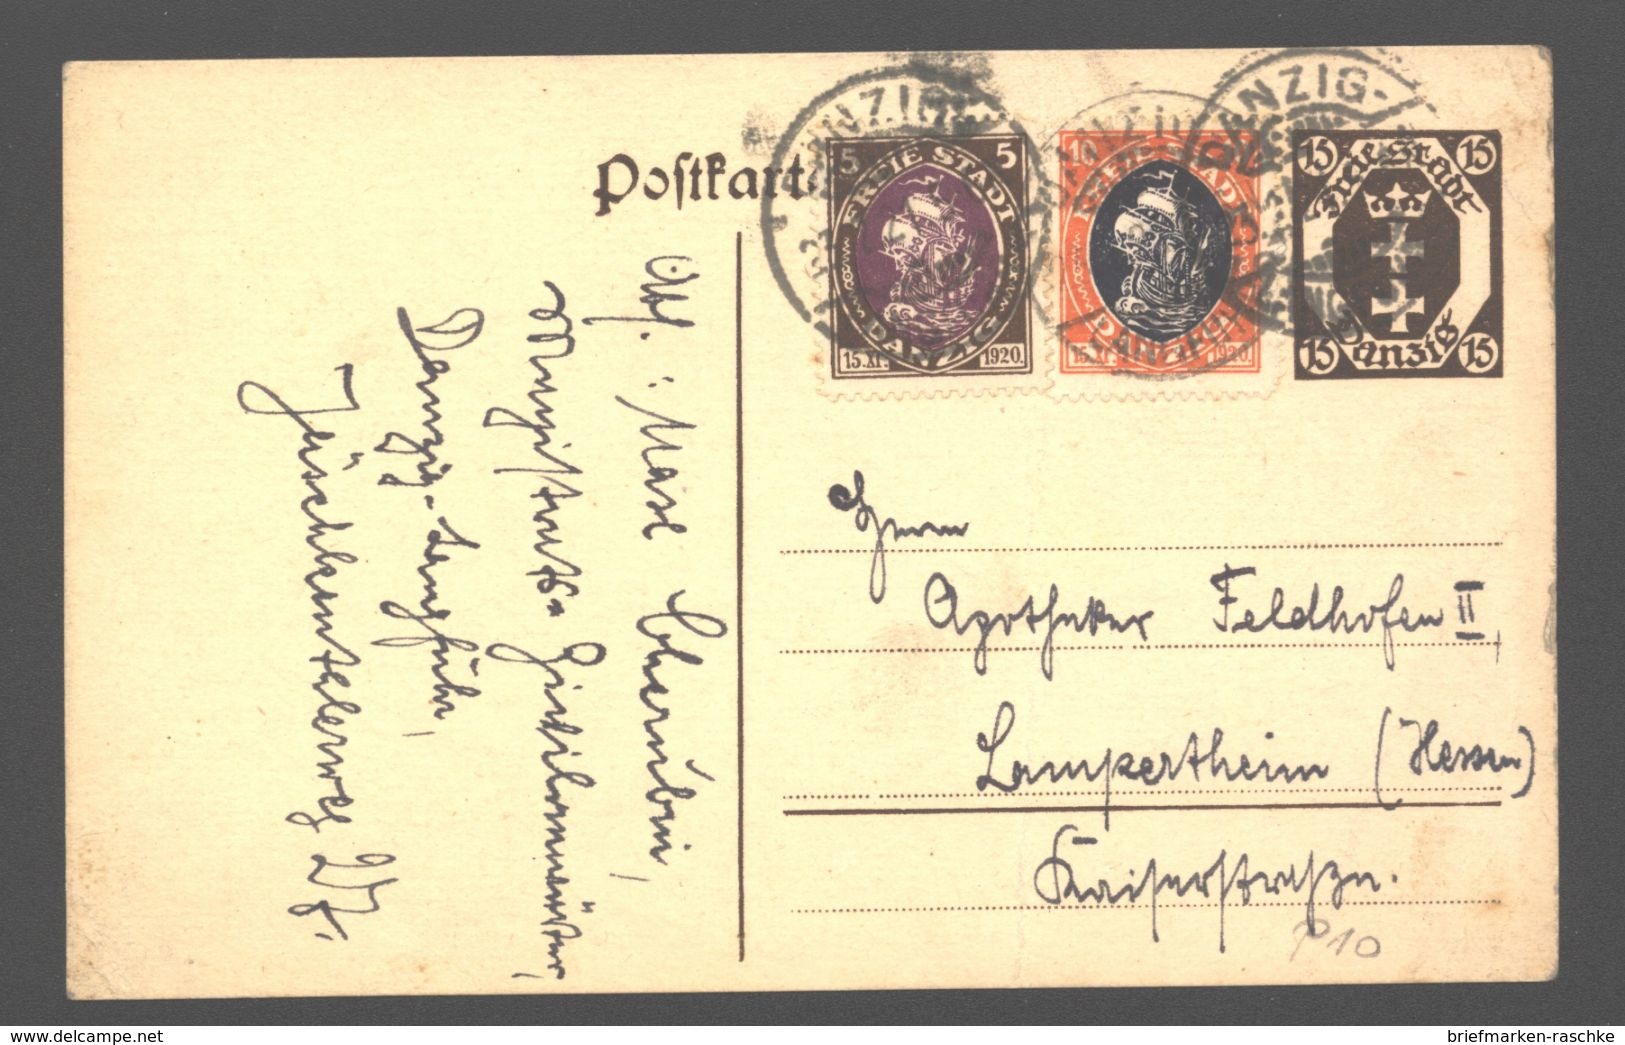 Postkarte
5 5
FREIE STADT
15.XI. 1920.
DANZIG
10
FREIE STADT
15.XI. 1920.
DANZIG
15 15
Freie Stadt
Danzig
15 15
DANZIG
DANZIG
DANZIG-
Abs. : Max Cherubim,
Magistrats-
Danzig-Langfuhr,
Jäschkentalerweg 27
Herrn
Apotheker Feldhofen II,
Lampertheim (Hessen)
Kaiserstraße.
P10
briefmarken-raschke